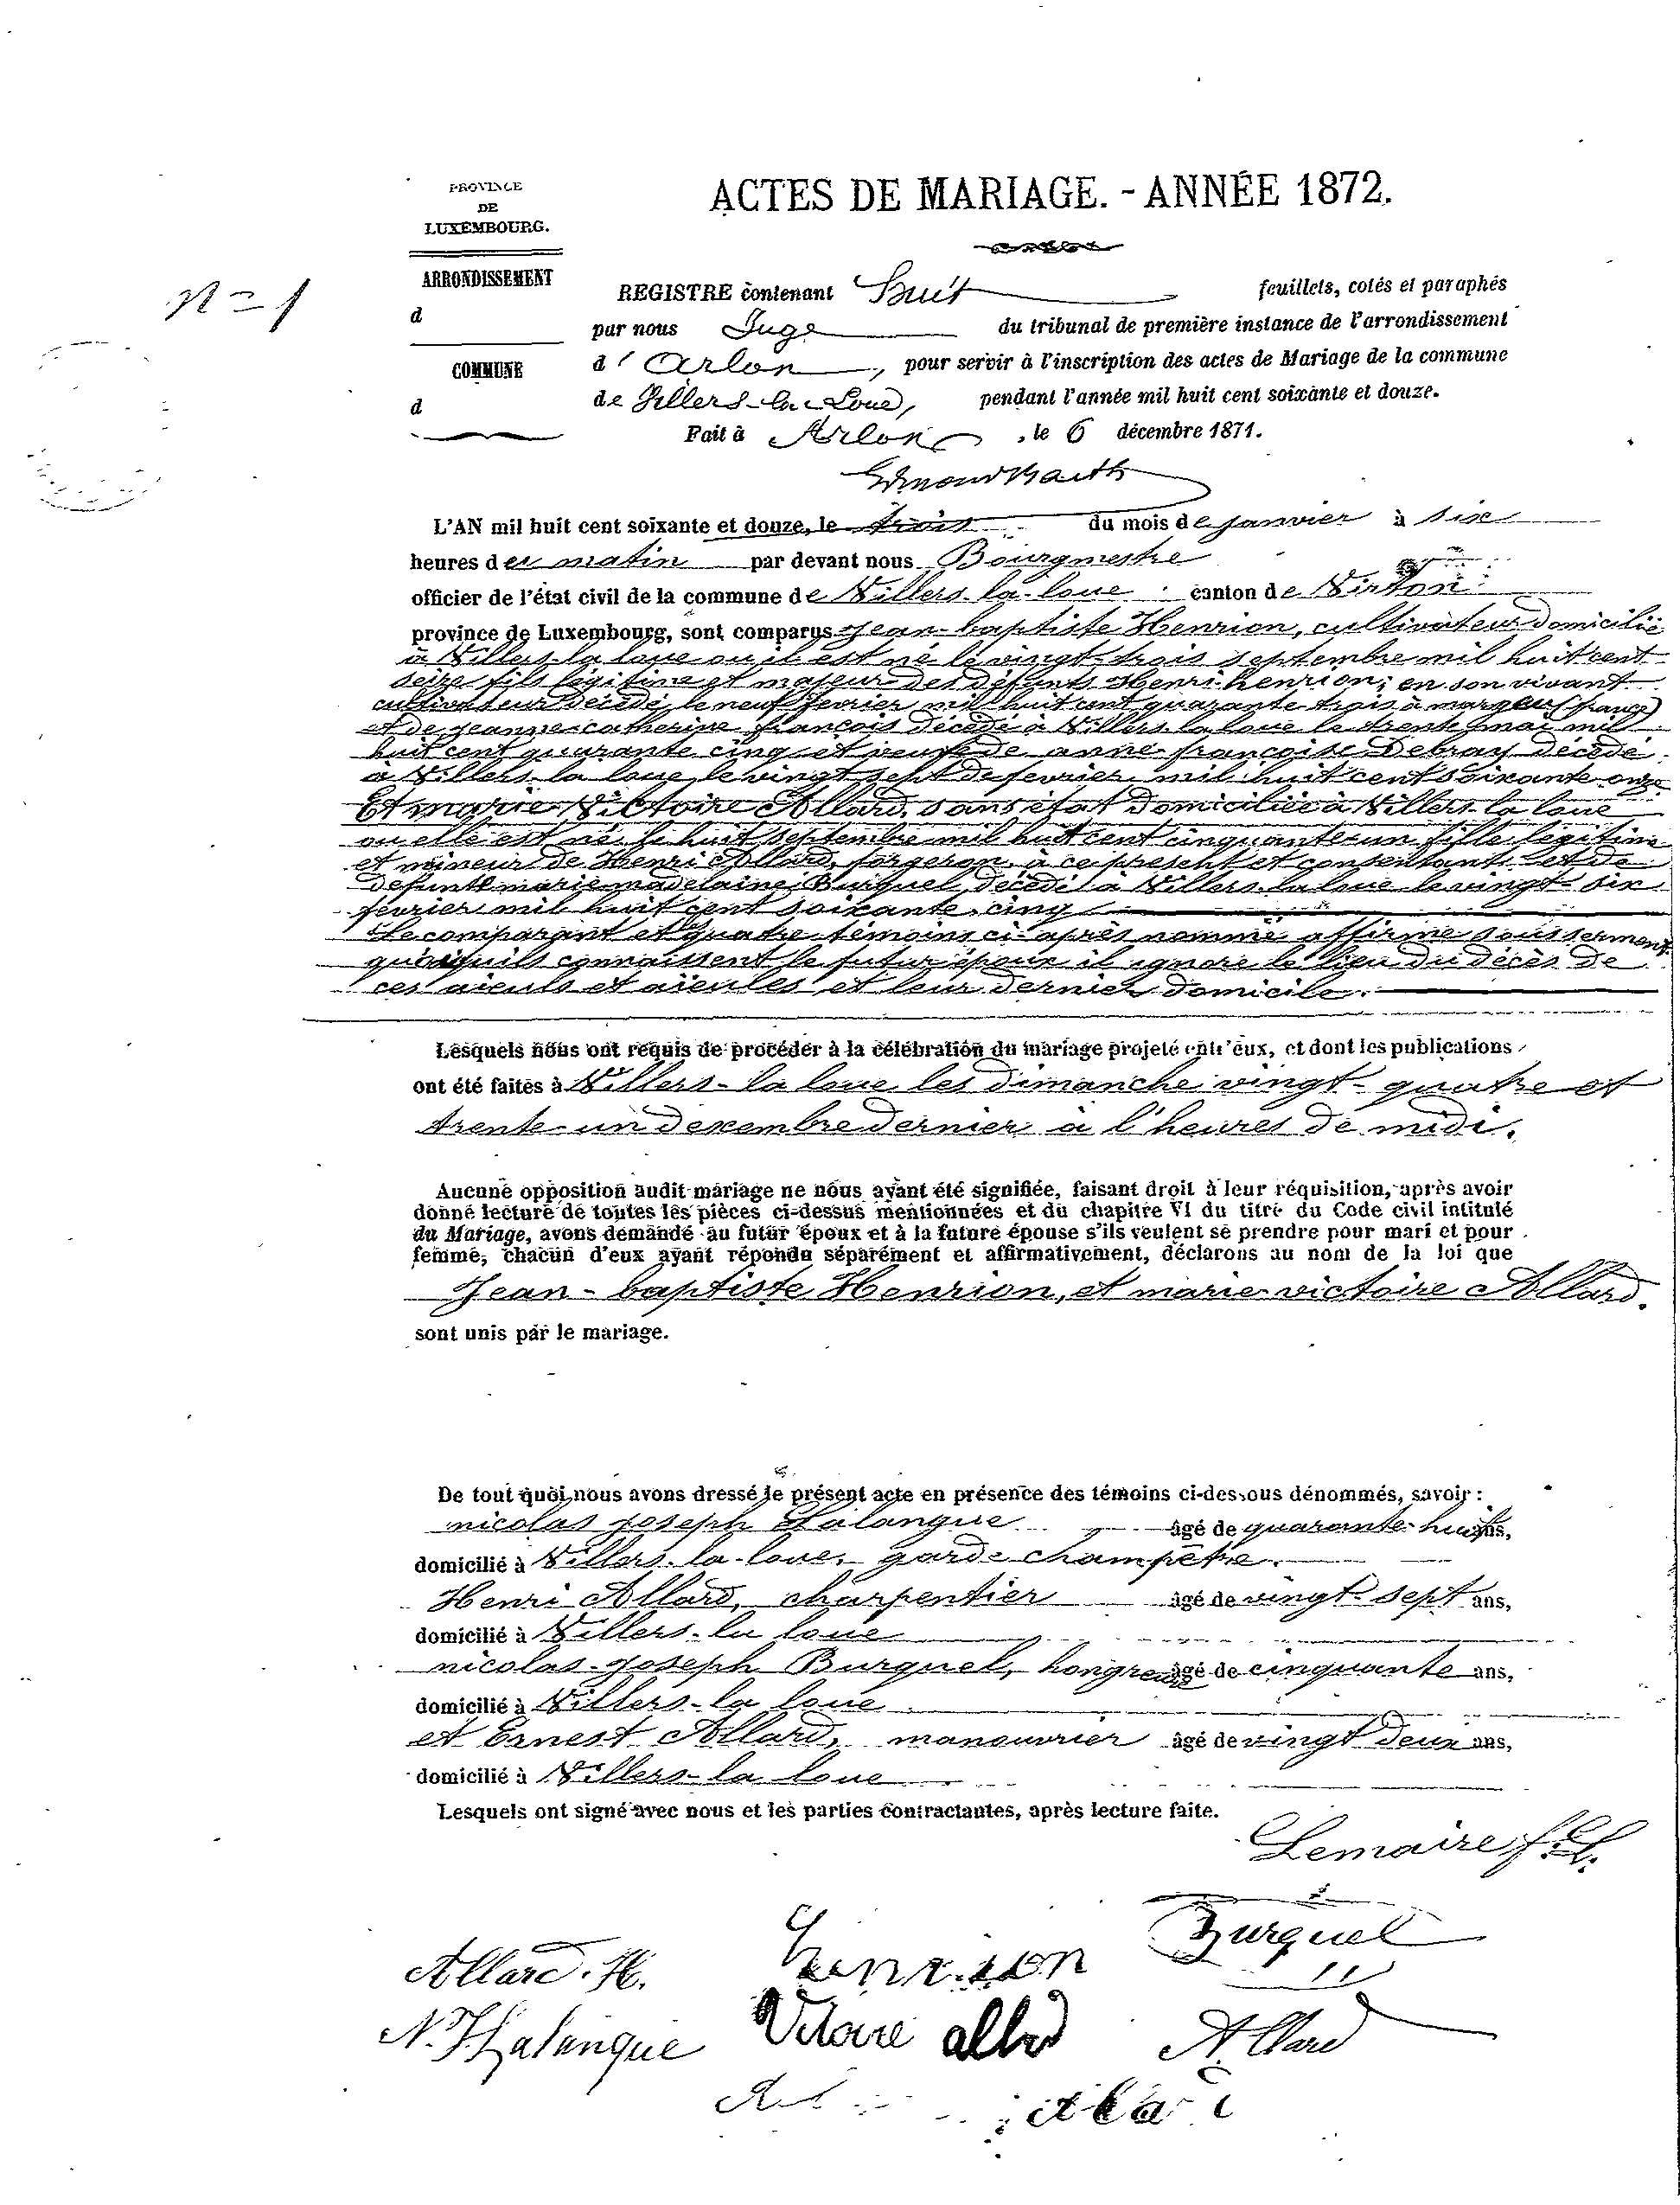 PROVINCE
DE
LUXEMBOURG.
ARRONDISSEMENT
d
COMMUNE
d
N° 1
ACTES DE MARIAGE. - ANNÉE 1872.
REGISTRE contenant huit feuillets, cotés et paraphés
par nous Juge du tribunal de première instance de l'arrondissement
d'Arlon, pour servir à l'inscription des actes de Mariage de la commune
de Villers-la-Loue, pendant l'année mil huit cent soixante et douze.
Fait à Arlon, le 6 décembre 1871.
L'AN mil huit cent soixante et douze, le trois du mois de janvier à six
heures du matin par devant nous Bourgmestre
officier de l'état civil de la commune de Villers-la-loue canton de Virton
province de Luxembourg, sont comparus Jean-baptiste Henrion, cultivateur domicilié
à Villers-la-loue ou il est né le vingt-trois septembre mil huit cent
seize fils légitime et majeur des défunts Henri henrion, en son vivant
cultivateur décédé le neuf fevrier mil huit cent quarante trois à margeus (france)
et de jeanne-catherine françois décédé à Villers-la-loue le trente mai mil
huit cent quarante cinq et veuf de anne-françoise Debray décédé
à Villers-la-loue le vingt sept de fevrier mil huit cent soixante-onze
Et marie Victoire Allard, sans état domiciliée à Villers-la-loue
ou elle est né le huit septembre mil huit cent cinquante-un fille légitime
et mineur de Henri Allard, forgeron, à ce présent et consentant et de
defunte marie-madelaine Burquel décédé à Villers-la-loue le vingt-six
février mil huit cent soixante-cinq
Le comparant et quatre témoins ci-après nommé affirme sous serment
quoiquils connaissent le futur époux il ignore le lieu du décès de
ces aïeuls et aïeules et leur dernier domicile.
Lesquels nous ont requis de procéder à la célébration du mariage projeté entr'eux, et dont les publications
ont été faites à Villers-la-loue les dimanche vingt-quatre et
trente-un decembre dernier à l'heures de midi.
Aucune opposition audit mariage ne nous ayant été signifiée, faisant droit à leur réquisition, après avoir
donné lecture de toutes les pièces ci-dessus mentionnées et du chapitre VI du titre du Code civil intitulé
du Mariage, avons demandé au futur époux et à la future épouse s'ils veulent se prendre pour mari et pour
femme, chacun d'eux ayant répondu séparément et affirmativement, déclarons au nom de la loi que
Jean-baptiste Henrion, et marie-victoire Allard.
sont unis par le mariage.
De tout quoi nous avons dressé le présent acte en présence des témoins ci-dessous dénommés, savoir :
nicolas joseph Lalangue âgé de quarante-huit ans,
domicilié à Villers-la-loue, garde champêtre.
Henri Allard, charpentier âgé de vingt-sept ans,
domicilié à Villers-la loue
nicolas-joseph Burquel, hongreur âgé de cinquante ans,
domicilié à Villers-la loue
et Ernest Allard, manouvrier âgé de vingt deux ans,
domicilié à Villers-la loue
Lesquels ont signé avec nous et les parties contractantes, après lecture faite.
Lemaire f.
Burquel
Allard. H. henrion
N. J. Lalangue Vitoire allard Allard